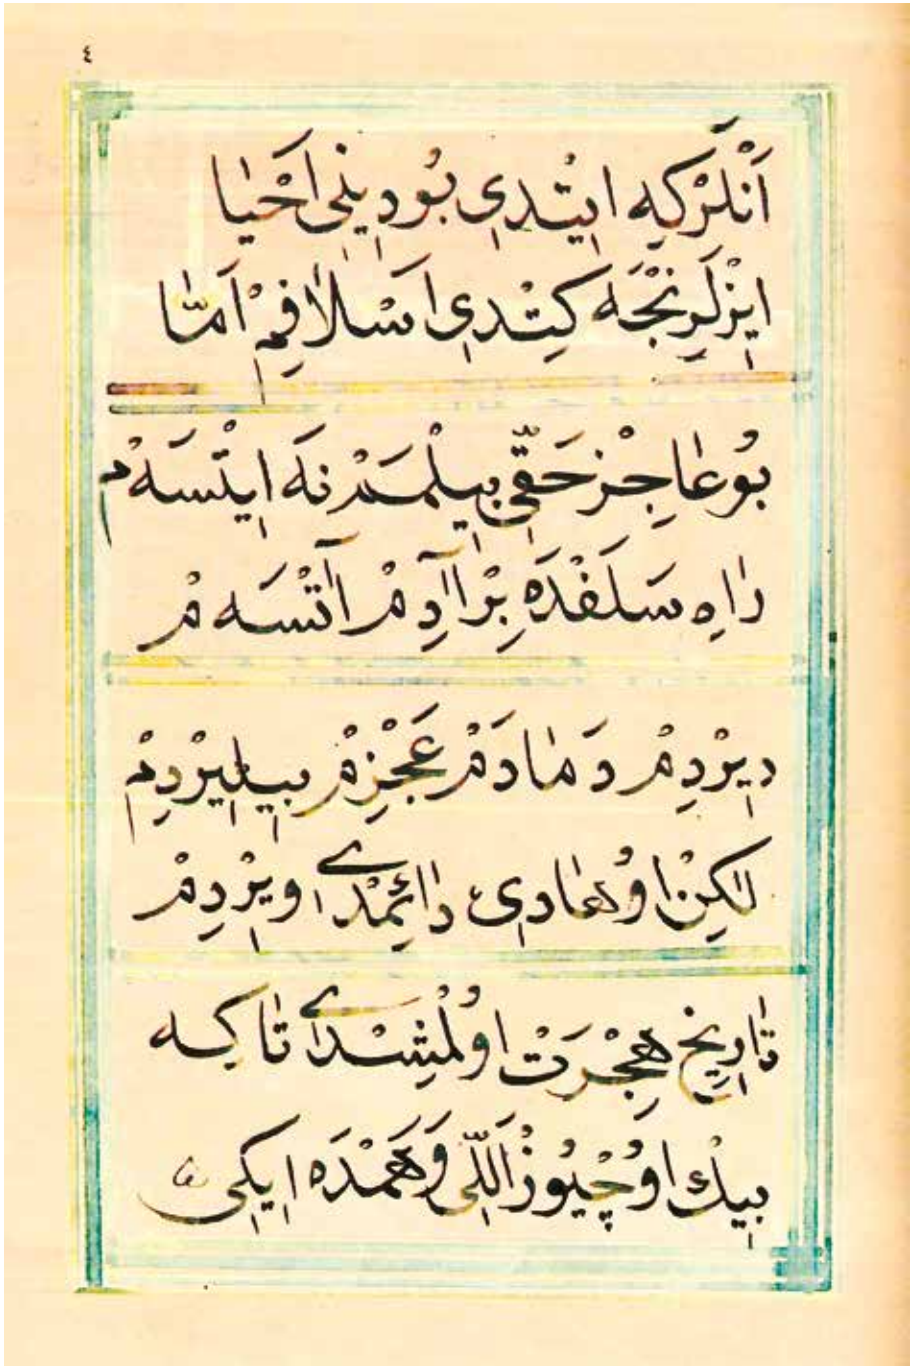 ٤
اَنْلَرْ كِه ايتْدِى بُو دِينِى اِحْيَا
ايزْلَرِنْجَه كِتْدِى اَسْلَافِمْ اَمَّا
بُو عَاجِزْ حَقِّى بِيلْمَمْ نَه ايتْسَه مْ
رَاهِ سَلَفْدَه بِرْ آدِمْ آتْسَه مْ
دِيرْدِمْ دَمَادَمْ عَجْزِمْ بِيلِيرْدِمْ
لٰكِنْ اوُ هَادِى دَائِمْدَى اوِيرْدِمْ
تَارِيخِ هِجْرَتْ اوُلْمِشْدَى تَا كِه
بِيكْ اوُچْيُوزْ اَللِّى وَ هَمْدَه اِيكِى